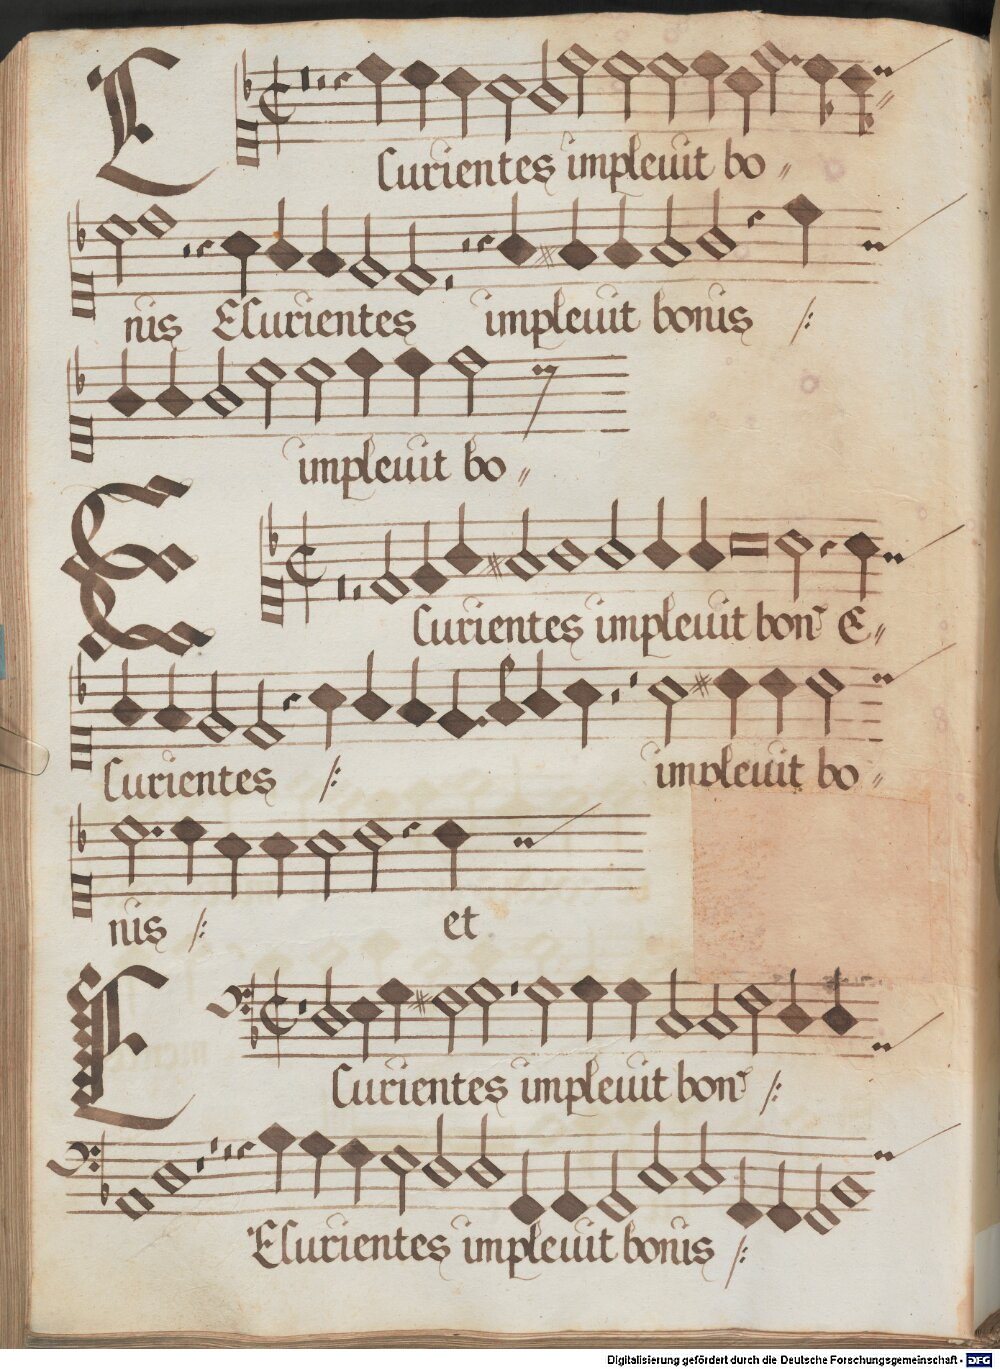 Esurientes impleuit bo〃
nis Esurientes impleuit bonis /:
impleuit bo〃
Esurientes impleuit bon⁹ E〃
surientes /: impleuit bo〃
nis /: et
Esurientes impleuit bon⁹ /:
Esurientes impleuit bonis /:
Digitalisierung gefördert durch die Deutsche Forschungsgemeinschaft - DFG